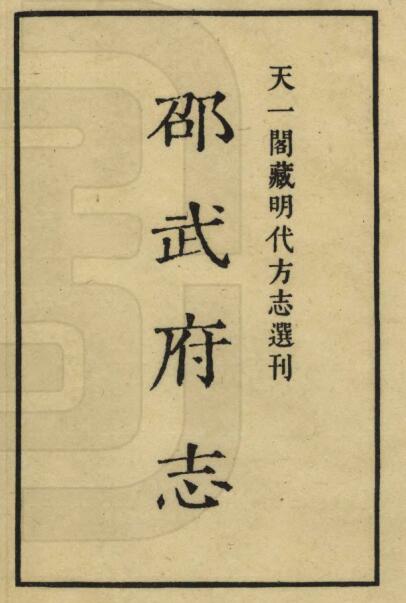 天一閣藏明代方志選刊
邵武府志